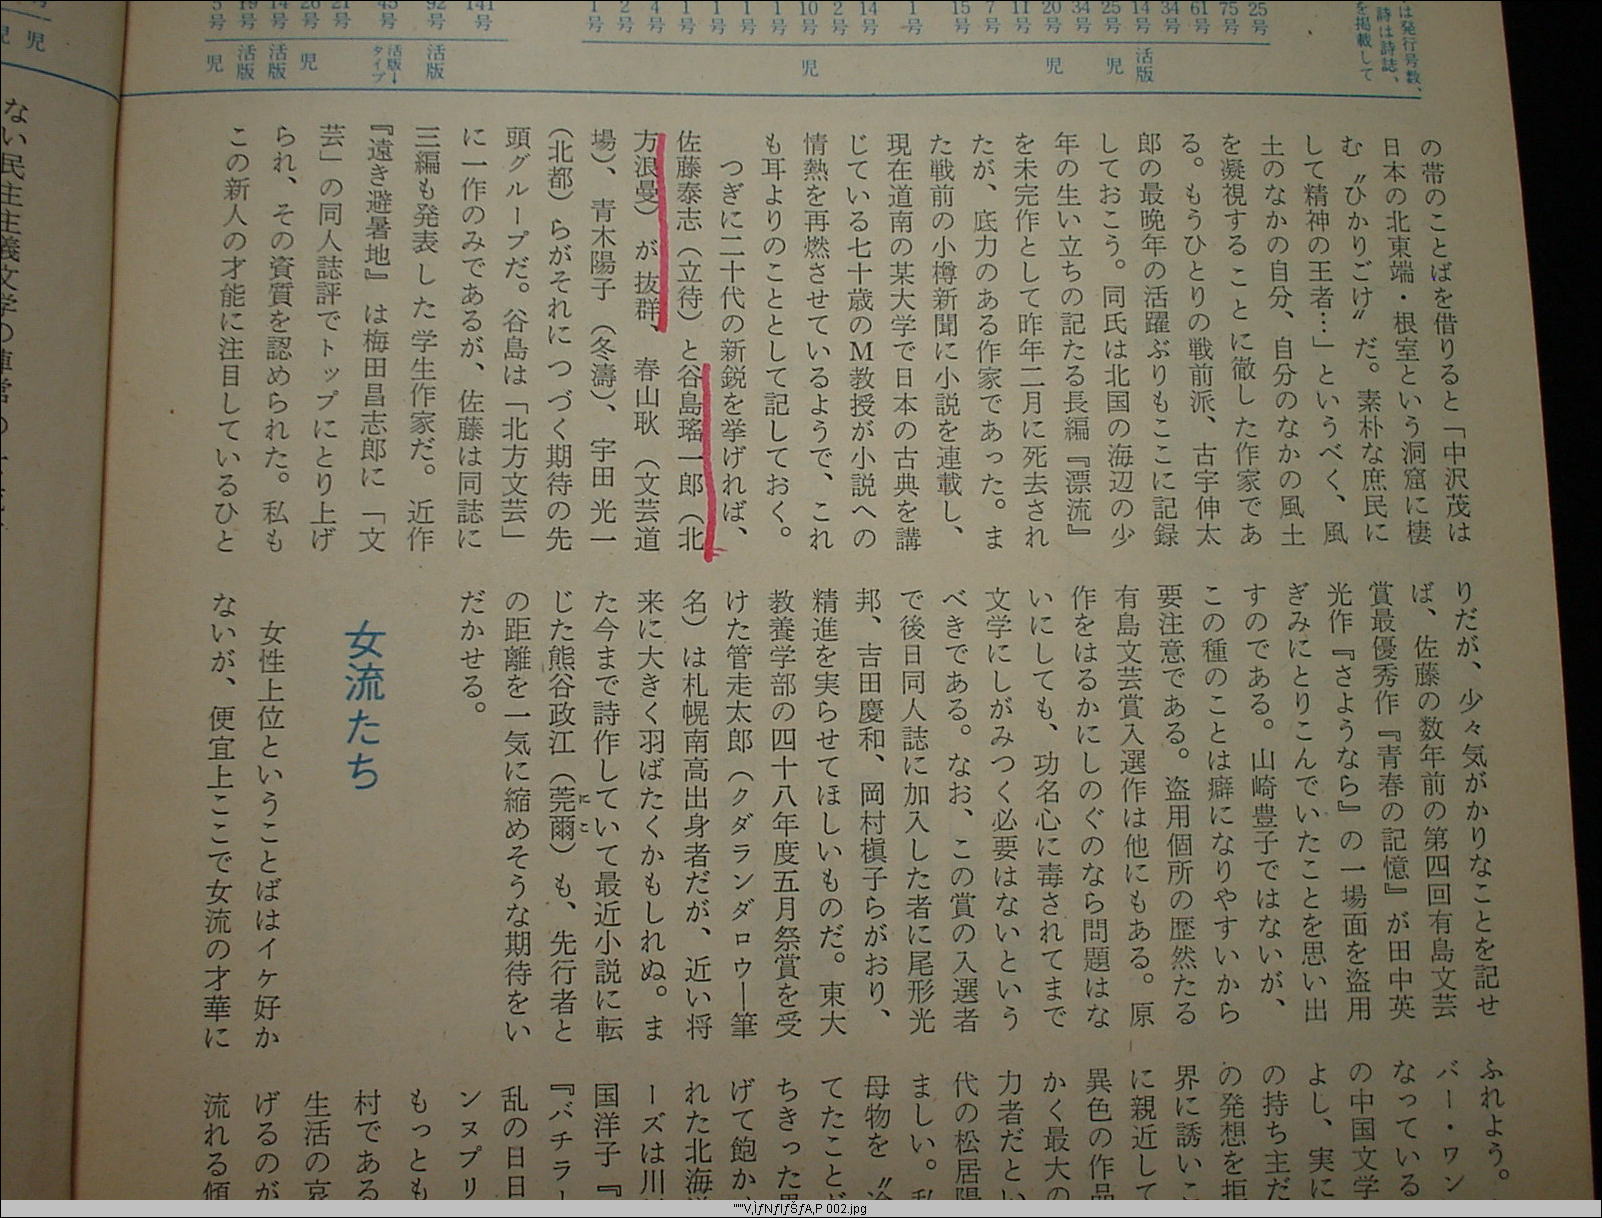 25号
75号
61号
34号
14号 活版
25号 児
34号
20号 児
11号
7号
15号
1号
14号
2号
10号 児
1号
1号
1号
4号
2号
1号
141号
92号 活版
43号 活版→タイプ
21号
26号 児
14号 活版
19号 活版
5号 児
は発行号数、
詩は詩誌、
を掲載して
の帯のことばを借りると「中沢茂は
日本の北東端・根室という洞窟に棲
む〝ひかりごけ〟だ。素朴な庶民に
して精神の王者…」というべく、風
土のなかの自分、自分のなかの風土
を凝視することに徹した作家であ
る。もうひとりの戦前派、古宇伸太
郎の最晩年の活躍ぶりもここに記録
しておこう。同氏は北国の海辺の少
年の生い立ちの記たる長編『漂流』
を未完作として昨年二月に死去され
たが、底力のある作家であった。ま
た戦前の小樽新聞に小説を連載し、
現在道南の某大学で日本の古典を講
じている七十歳のM教授が小説への
情熱を再燃させているようで、これ
も耳よりのこととして記しておく。
つぎに二十代の新鋭を挙げれば、
佐藤泰志（立待）と谷島瑤一郎（北
方浪曼）が抜群、春山耿（文芸道
場）、青木陽子（冬濤）、宇田光一
（北都）らがそれにつづく期待の先
頭グループだ。谷島は「北方文芸」
に一作のみであるが、佐藤は同誌に
三編も発表した学生作家だ。近作
『遠き避暑地』は梅田昌志郎に「文
芸」の同人誌評でトップにとり上げ
られ、その資質を認められた。私も
この新人の才能に注目しているひと
りだが、少々気がかりなことを記せ
ば、佐藤の数年前の第四回有島文芸
賞最優秀作『青春の記憶』が田中英
光作『さようなら』の一場面を盗用
ぎみにとりこんでいたことを思い出
すのである。山崎豊子ではないが、
この種のことは癖になりやすいから
要注意である。盗用個所の歴然たる
有島文芸賞入選作は他にもある。原
作をはるかにしのぐのなら問題はな
いにしても、功名心に毒されてまで
文学にしがみつく必要はないという
べきである。なお、この賞の入選者
で後日同人誌に加入した者に尾形光
邦、吉田慶和、岡村槇子らがおり、
精進を実らせてほしいものだ。東大
教養学部の四十八年度五月祭賞を受
けた管走太郎（クダランダロウ―筆
名）は札幌南高出身者だが、近い将
来に大きく羽ばたくかもしれぬ。ま
た今まで詩作していて最近小説に転
じた熊谷政江（莞爾にこ）も、先行者と
の距離を一気に縮めそうな期待をい
だかせる。
女流たち
女性上位ということばはイケ好か
ないが、便宜上ここで女流の才華に
ふれよう。
バー・ワン
なっている
の中国文学
よし、実に
の持ち主だ
の発想を拒
界に誘いこ
に親近して
異色の作品
かく最大の
力者だとい
代の松居陽
ましい。私
母物を〝冷
てたことが
ちきった男
げて飽か
れた北海道
ーズは川
国洋子『
『バチラー
乱の日日
ンヌプリ
もっとも
村である
生活の哀
げるのが
流れる傾
ない民主主義文学の陣営の
児
"""V‚ÌƒNƒ‰ƒŠƒA‚P 002.jpg